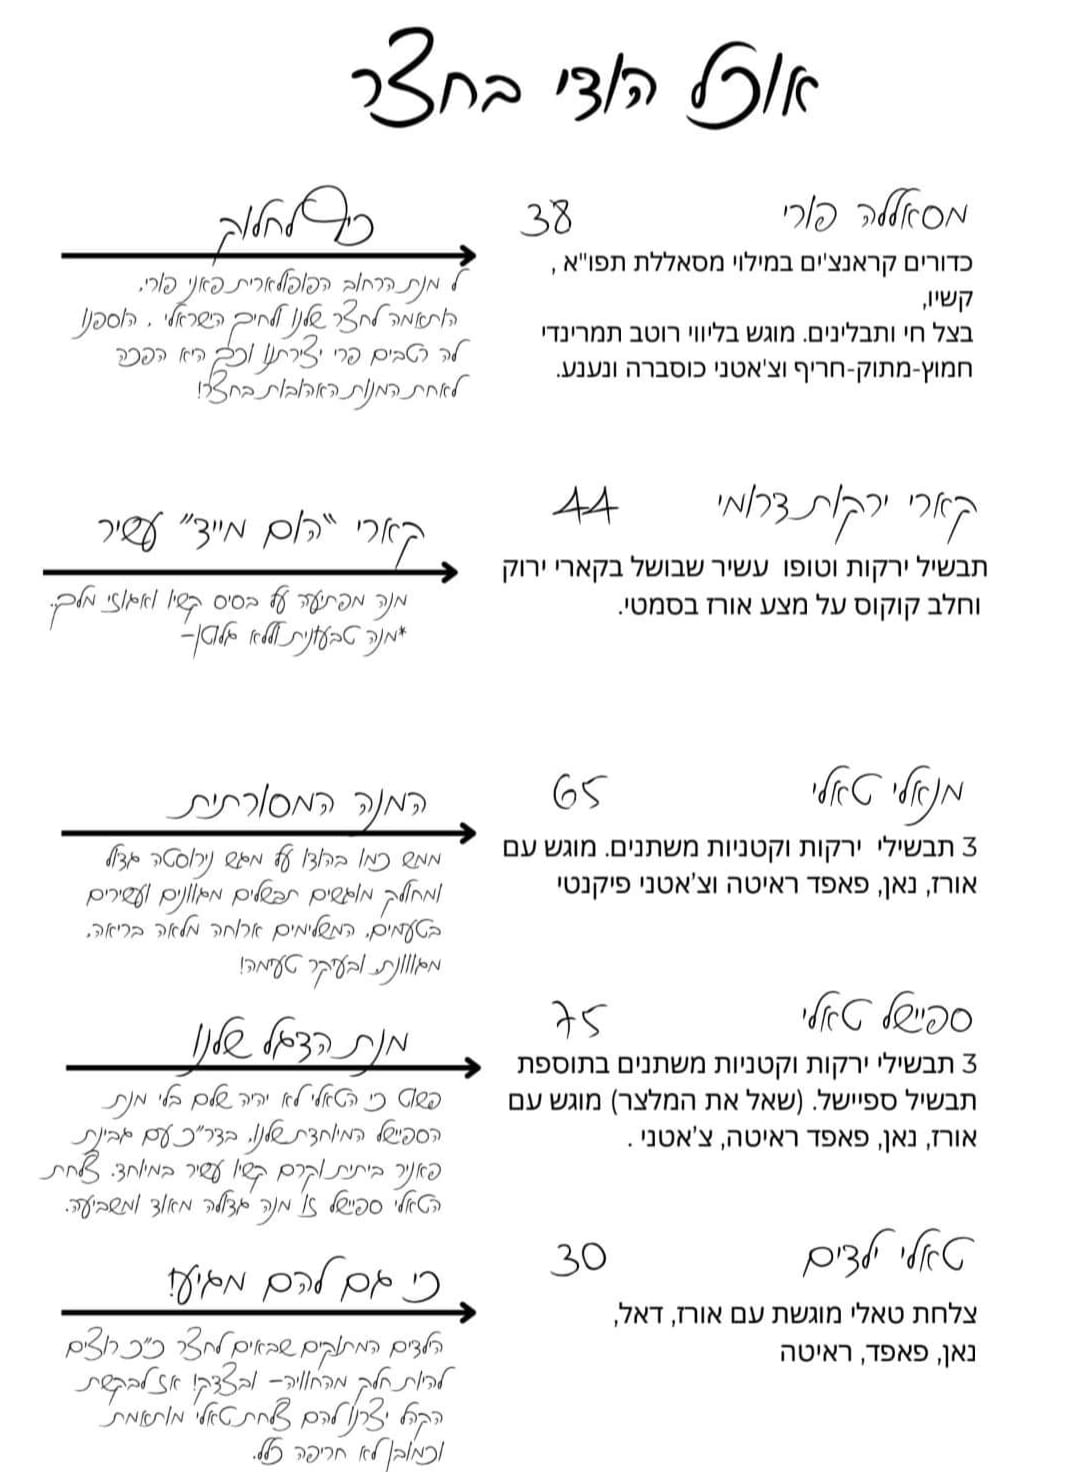 אוכל הודי בחצר
מסאללה פורי 38
כדורים קראנצ'ים במילוי מסאללת תפו"א ,
קשיו,
בצל חי ותבלינים. מוגש בליווי רוטב תמרינדי
חמוץ-מתוק-חריף וצ'אטני כוסברה ונענע.
כיף לחלוק
ל מנת הרחוב הפופולארית פאני פורי,
הותאמה לחצר שלנו ולחיך הישראלי . הוספנו
לה רטבים פרי יצירתנו וכך היא הפכה
לאחת המנות האהובות בחצר!
קארי ירקות דרומי 44
תבשיל ירקות וטופו עשיר שבושל בקארי ירוק
וחלב קוקוס על מצע אורז בסמטי.
קארי "הום מייד" עשיר
מנה מפתיעה על בסיס קשיו ואגוזי מלך.
*מנה טבעונית וללא גלוטן-
מנאלי טאלי 65
3 תבשילי ירקות וקטניות משתנים. מוגש עם
אורז, נאן, פאפד ראיטה וצ'אטני פיקנטי
המנה המסורתית
ממש כמו בהודו על מגש נירוסטה גדול
ומחולק מוגשים תבשלים מגוונים ועשירים
בטעמים. המשלימים ארוחה מלאה בריאה,
מגוונת ובעיקר טעימה!
ספיישל טאלי 75
3 תבשילי ירקות וקטניות משתנים בתוספת
תבשיל ספיישל. (שאל את המלצר) מוגש עם
אורז, נאן, פאפד ראיטה, צ'אטני .
מנת הדגל שלנו
פשוט כי הטאלי לא יהיה שלם בלי מנת
הספיישל המיוחדת שלנו. בדר"כ עם גבינת
פאניר ביתית וקרם קשיו עשיר במיוחד. צלחת
הטאלי ספיישל זו מנה גדולה מאוד ומשביעה.
טאלי ילדים 30
צלחת טאלי מוגשת עם אורז, דאל,
נאן, פאפד, ראיטה
כי גם להם מגיע!
הילדים המתוקים שבאים לחצר כ"כ רוצים
להיות חלק מהחוויה- ובצדק! אז לבקשת
הקהל יצרנו להם צלחת טאלי מותאמת
וכמובן לא חריפה כלל.